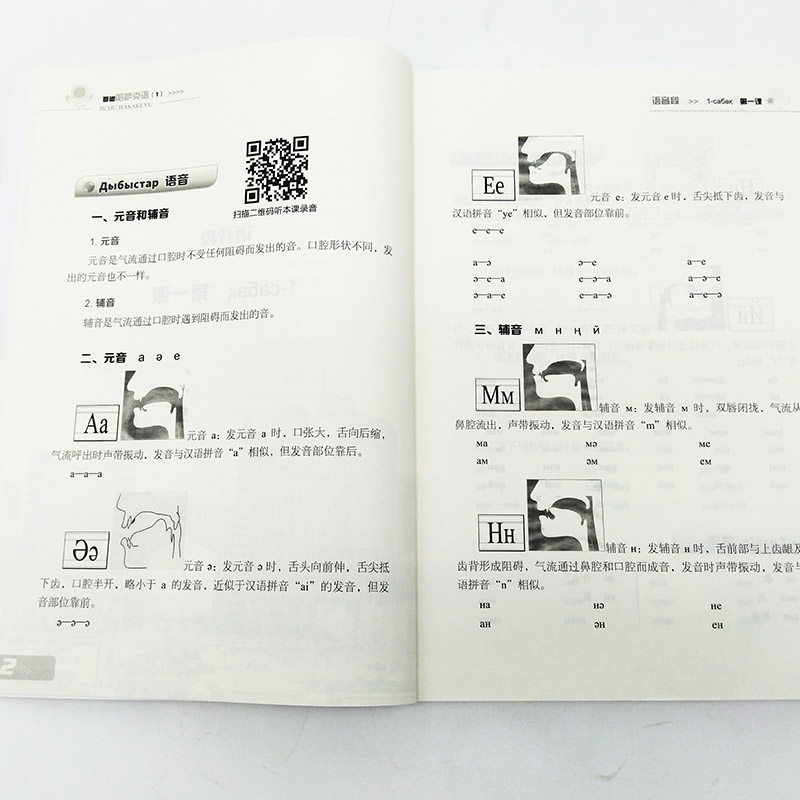 基础哈萨克语（1） >>>>
JICHU HASAKEYU
Дыбыстар 语音
扫描二维码听本课录音
一、元音和辅音
1. 元音
元音是气流通过口腔时不受任何阻碍而发出的音。口腔形状不同，发
出的元音也不一样。
2. 辅音
辅音是气流通过口腔时遇到阻碍而发出的音。
二、元音 а ә е
Аа
元音 а：发元音 а 时，口张大，舌向后缩，
气流呼出时声带振动，发音与汉语拼音“a”相似，但发音部位靠后。
а—а—а
Әә
元音 ә：发元音 ә 时，舌头向前伸，舌尖抵
下齿，口腔半开，略小于 а 的发音，近似于汉语拼音“ai”的发音，但发
音部位靠前。
ә—ә—ә
2
语音段 >> 1-сабақ 第一课
Ее
元音 е：发元音 е 时，舌尖抵下齿，发音与
汉语拼音“ye”相似，但发音部位靠前。
е—е—е
а—ә ә—е а—е
ә—е—а е—ә—а а—е—ә
ә—а—е е—а—ә а—ә—ә
三、辅音 м н ң й
Мм
辅音 м：发辅音 м 时，双唇闭拢，气流从
鼻腔流出，声带振动，发音与汉语拼音“m”相似。
ма мә ме
ам әм ем
Нн
辅音 н：发辅音 н 时，舌前部与上齿龈及
齿背形成阻碍，气流通过鼻腔和口腔而成音，发音时声带振动，发音与
语拼音“n”相似。
на нә не
ан ән ен